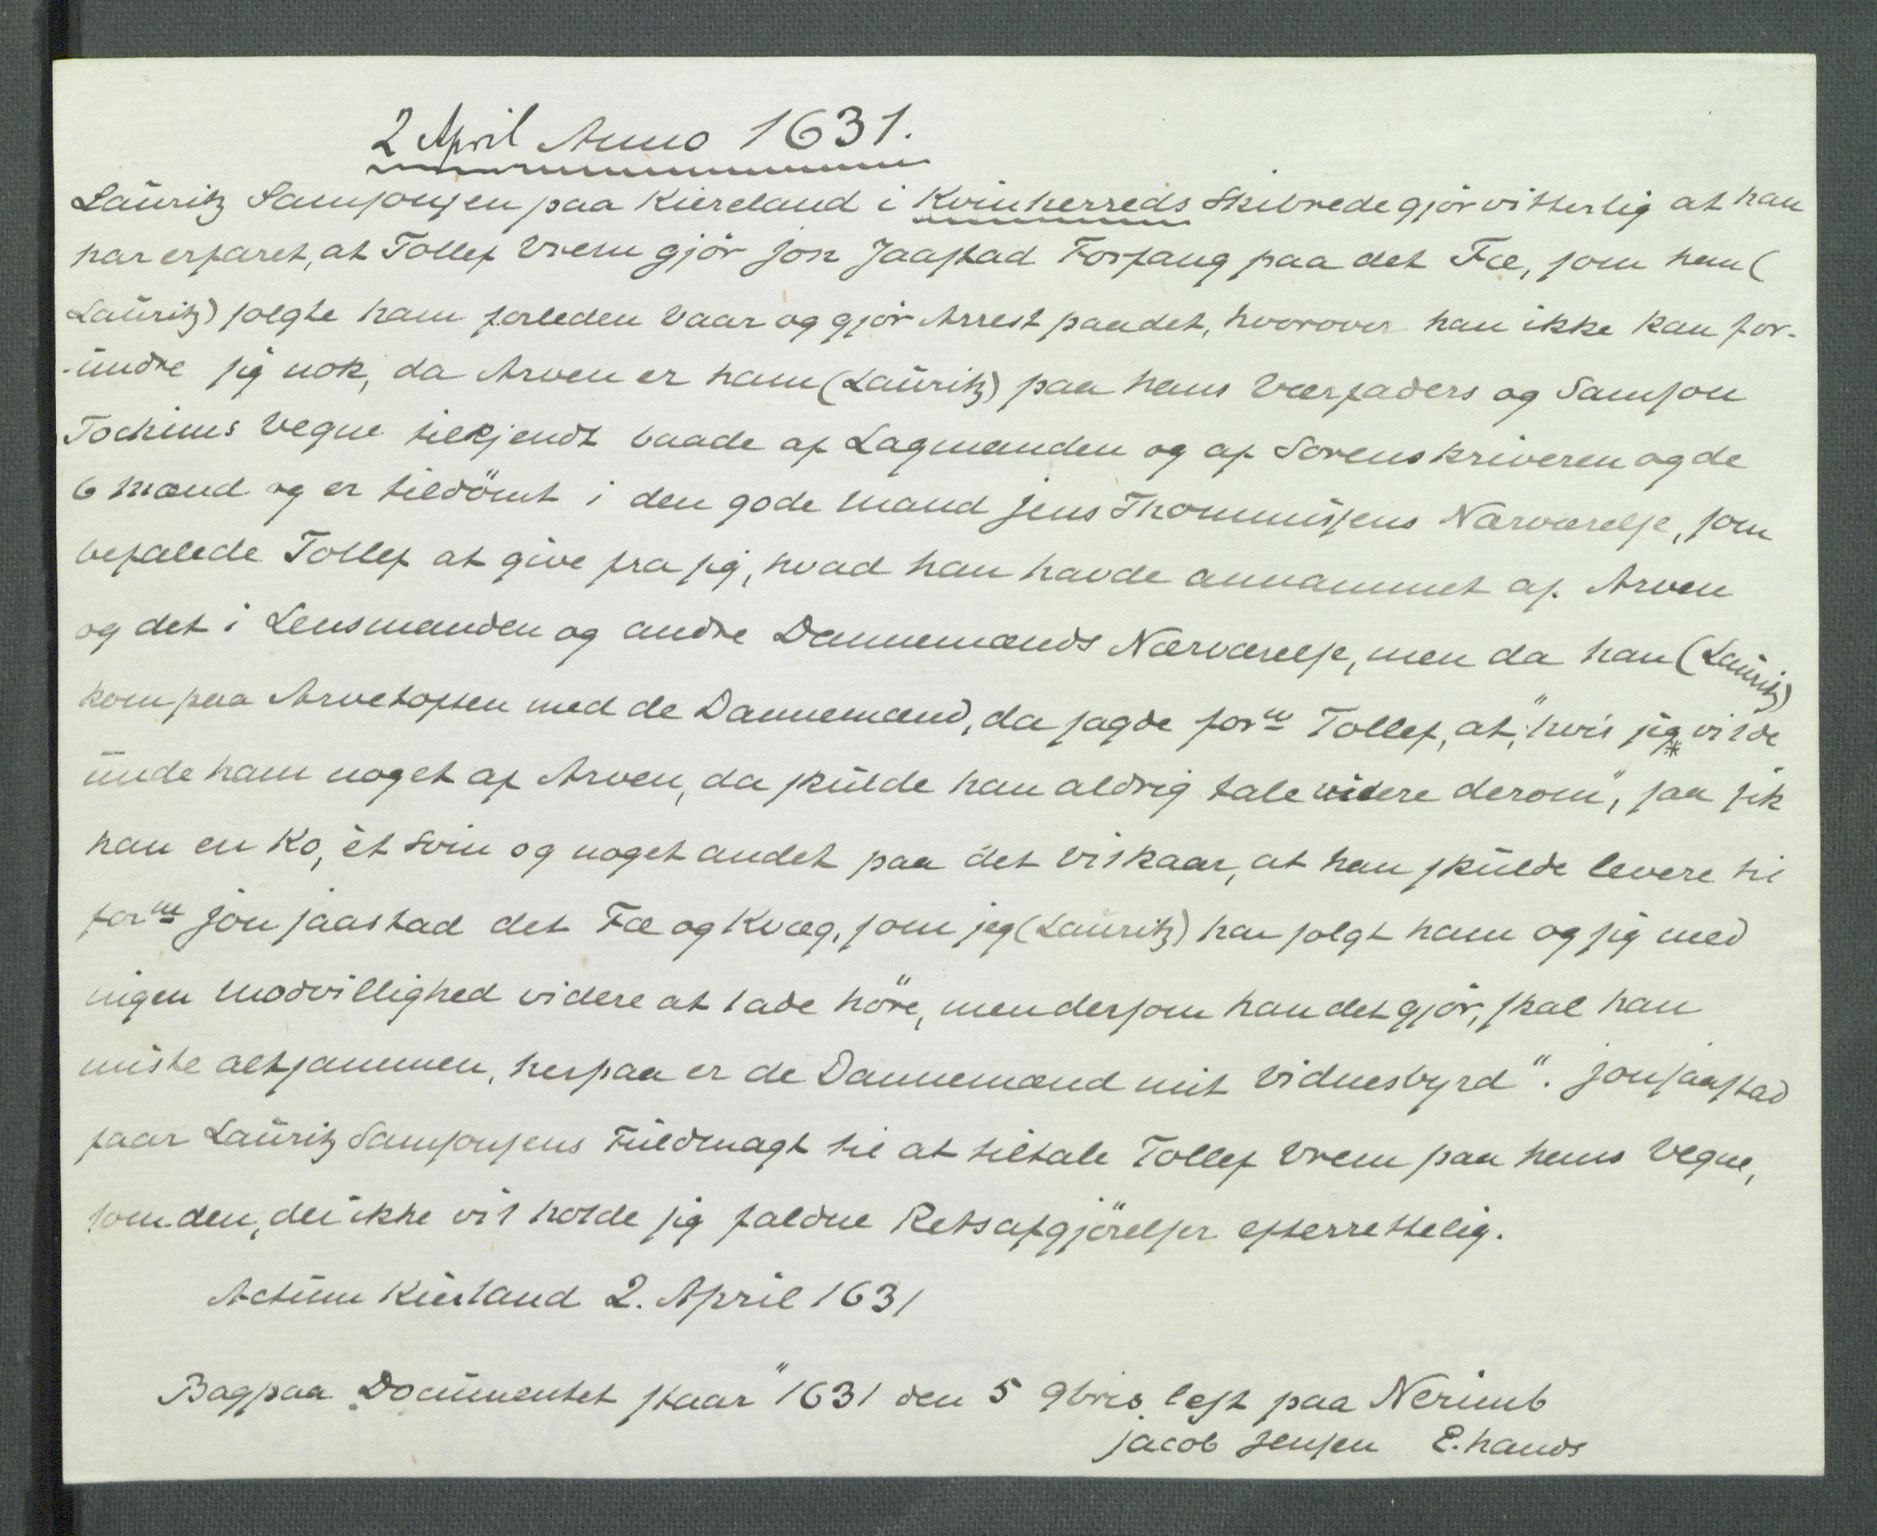 2 April Anno 1631.
Lauritz Samsonsen paa Kiereland i Kvinherreds Skibrede gjör vitterlig at han
har erfaret, at Tollef Vrem gjör Jon Jaastad Forfang paa det Fæ, som han (
Lauritz) solgte ham forleden Vaar og gjör Arrest paa det, hvorover han ikke kan for-
-undre sig nok, da Arven er ham (Lauritz) paa hans Værfaders og Samson
Tochims Vegne tilkjendt baade af Lagmanden og af Sorenskriveren og de
6 Mænd og er tildömt i den gode Mand Jens Thommisens Nærværelse, som
befalede Tollef at give fra sig, hvad han havde annammet af Arven
og det i Lensmanden og andre Dannemænds Nærværelse, men da han (Lauritz)
kom paa Arvetopten med de Dannemænd, da sagde form Tollef, at, "hvis jeg* vilde
unde ham noget af Arven, da skulde han aldrig tale videre derom", saa fik
han en Ko, èt Svin og noget andet paa det Vilkaar, at han skulde levere til
form Jon Jaastad det Fæ og Kvæg, som jeg (Lauritz) har solgt ham og sig med
ingen Modvillighed videre at lade höre, men dersom han det gjör, skal han
miste altsammen, herpaa er de Dannemænd mit Vidnesbyrd". Jon Jaastad
faar Lauritz Samsonsens Fuldmagt til at tiltale Tollef Vrem paa hans Vegne,
som den, der ikke vil holde sig faldne Retsafgjörelser efterrettelig.
Actum Kierland 2. April 1631
Bagpaa Documentet staar "1631 den 5 9bris lest paa Nerimb
Jacob Jensen E. hands